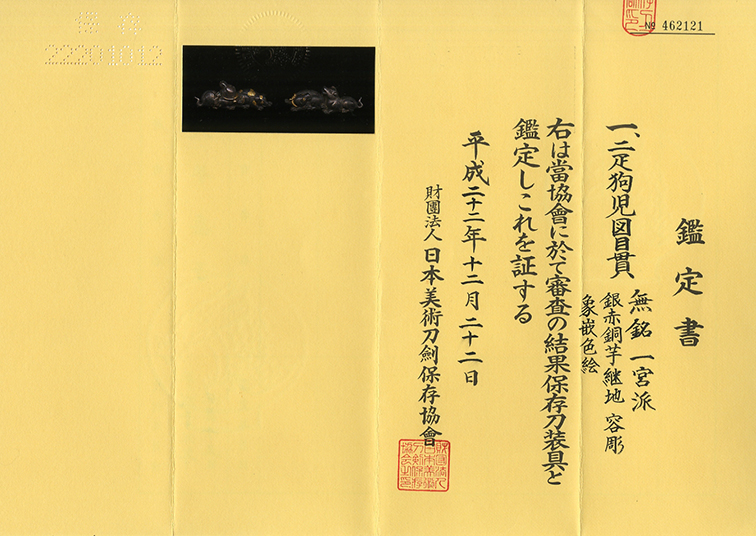 № 462121
鑑定書
一、二疋狗児図目貫
無銘 一宮派
銀赤銅芋継地 容彫
象嵌色絵
右は當協會に於て審査の結果保存刀装具と
鑑定しこれを証する
平成二十二年十二月二十二日
財團法人 日本美術刀劍保存協會
22201012